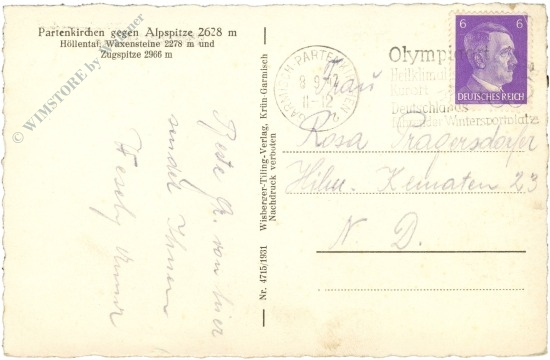 Partenkirchen gegen Alpspitze 2628 m
Höllental, Waxensteine 2278 m und
Zugspitze 2966 m
© WIMSTORE by Wimmer
Nr. 4715/1931 Wisberger-Tiling-Verlag, Krün-Garmisch
Nachdruck verboten
Beste Gr. von hier
sendet Ihnen
GARMISCH-PARTENKIRCHEN 2
8 9 42
11-12
Olympiaort
Heilklimat
Kurort
Deutschlands
Wintersportplatz
6 6
DEUTSCHES REICH
Frau
Rosa Pragersdorfer
Hilm. Kematen 23
N. D.